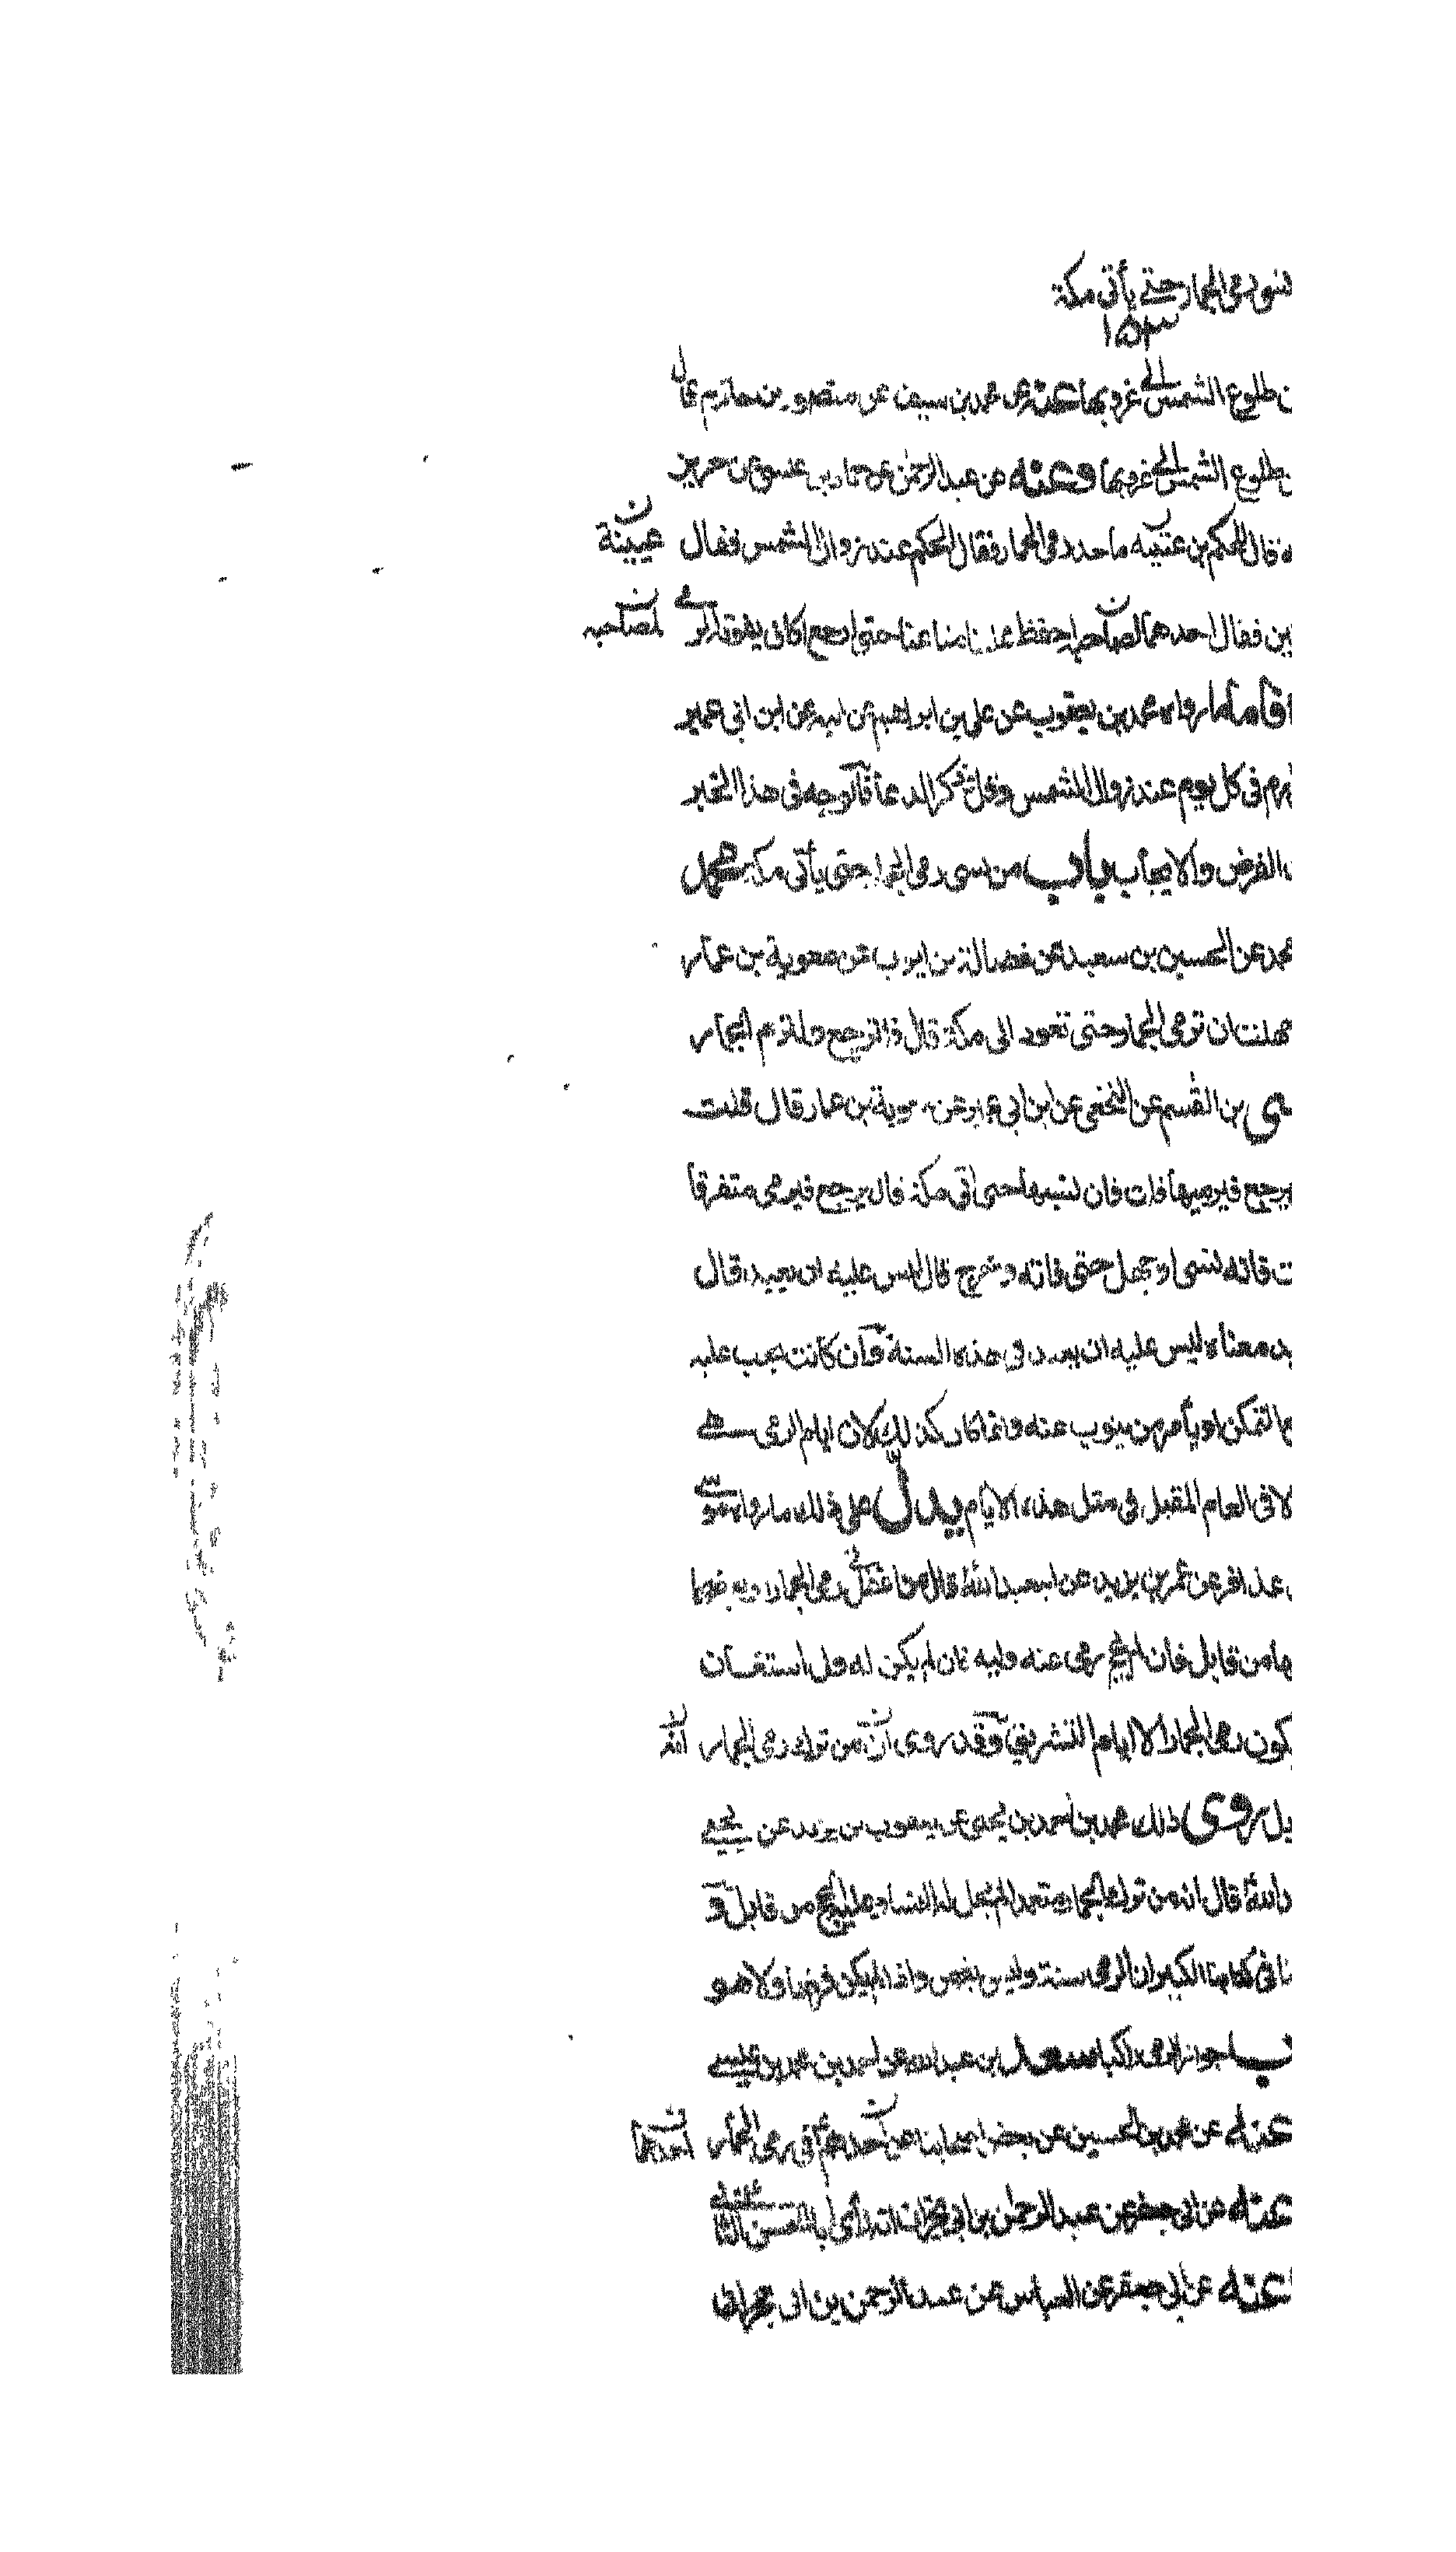 نسى رمى الجمار حتى يأتى مكة
١٥٣
طلوع الشمس الى غروبها عنه عن محمد بن سيف عن منصور بن حازم قال
طلوع الشمس الى غروبها وعنه عن عبد الرحمن عن حماد بن عيسى عن حريز
قال للحكم بن عتيبه ما حد رمى الجمار فقال الحكم عند زوال الشمس فقال
عيينة
فقال احدهما لصاحبه احفظ علينا متاعنا حتى ارجع اكان يفوته الرمى
لصاحبه
فأما ما رواه محمد بن يعقوب عن على بن ابراهيم عن ابيه عن ابن ابى عمير
فى كل يوم عند زوال الشمس وقل ذكر الدعاء فالوجه فى هذا الخبر
الفرض والايجاب باب من نسى رمى الجمار حتى يأتى مكة
عن الحسين بن سعيد عن فضالة بن ايوب عن معوية بن عمار
جهلت ان ترمى الجمار حتى تعود الى مكة قال فلترجع فلترم الجمار
بن القسم عن النخعى عن ابن ابى عمير عن معوية بن عمار قال قلت
يرجع فيرميها فان نسيها حتى اتى مكة قال يرجع فيرمى متفرقا
فاته نسى او جهل حتى فاته وخرج قال ليس عليه ان يعيد قال
معناه ليس عليه ان يعيد فى هذه السنة وان كانت يجب عليه
التمكن او يأمر من ينوب عنه وانما كان كذلك لان ايام الرمى هى
فى العام المقبل فى مثل هذه الايام يدل على ذلك ما رواه
عذافر عن عمر بن يزيد عن ابى عبد الله قال من اغفل رمى الجمار او بعضها
من قابل فان لم يحج رمى عنه وليه فان لم يكن له ولى استعان
يكون رمى الجمار الا ايام التشريق وقد روى ان من ترك رمى الجمار
روى ذلك محمد بن احمد بن يحيى عن يعقوب بن يزيد عن يحيى
الله قال انه من ترك الجمار متعمدا لم تحل له النساء وعليه الحج من قابل و
فى كتابنا الكبير ان الرمى سنة وليس بفرض واذا لم يكن فرضا ولا هو
جواز الرمى راكبا سعد بن عبد الله عن احمد بن محمد بن عيسى
عنه عن محمد بن الحسين عن بعض اصحابنا عن احدهم فى رمى الجمار
احدهما
عنه عن ابى جعفر عن عبد الرحمن بن ابى نجران انه رأى ابا الحسن الثانى
عنه عن ابى جعفر عن العباس عن عبد الرحمن بن ابى نجران